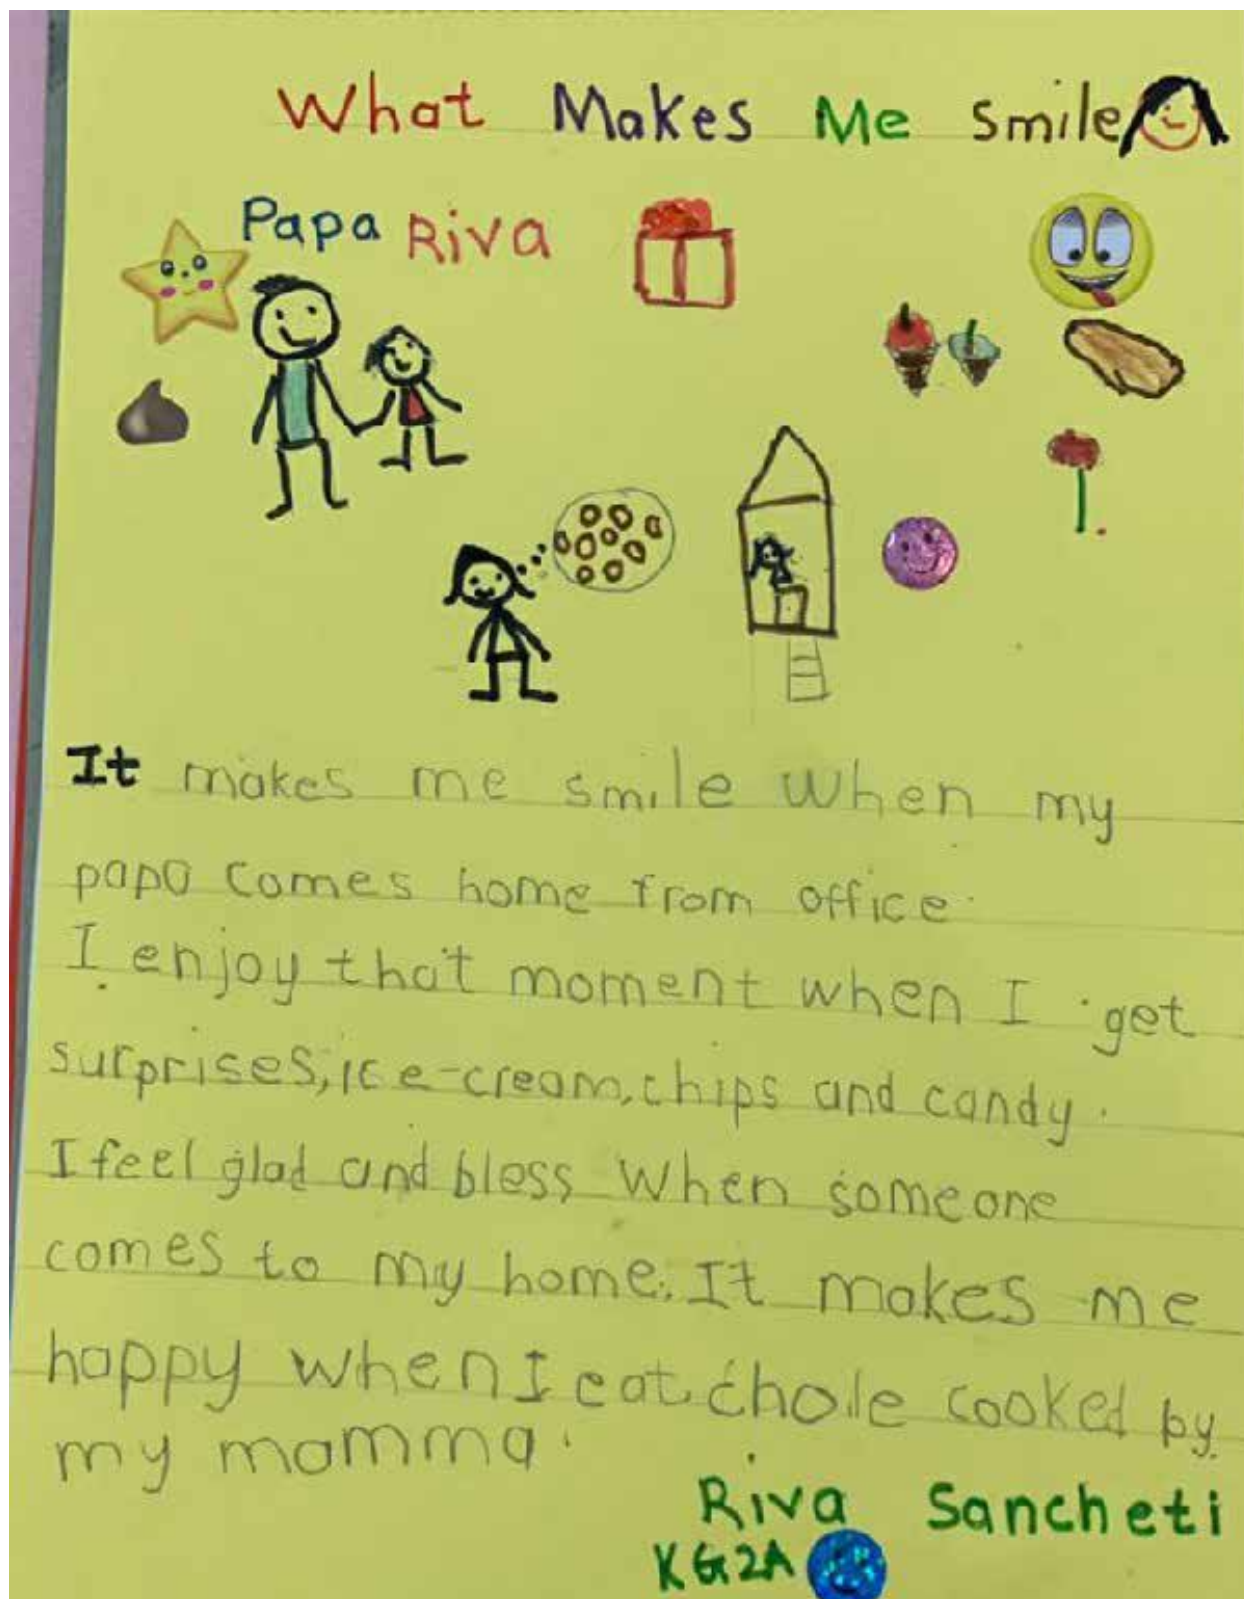 What Makes Me Smile
Papa Riva
It makes me smile when my
papa comes home from office.
I enjoy that moment when I get
surprises, ice-cream, chips and candy.
I feel glad and bless when someone
comes to my home. It makes me
happy when I eat chole cooked by
my mamma.
Riva Sancheti
KG2A